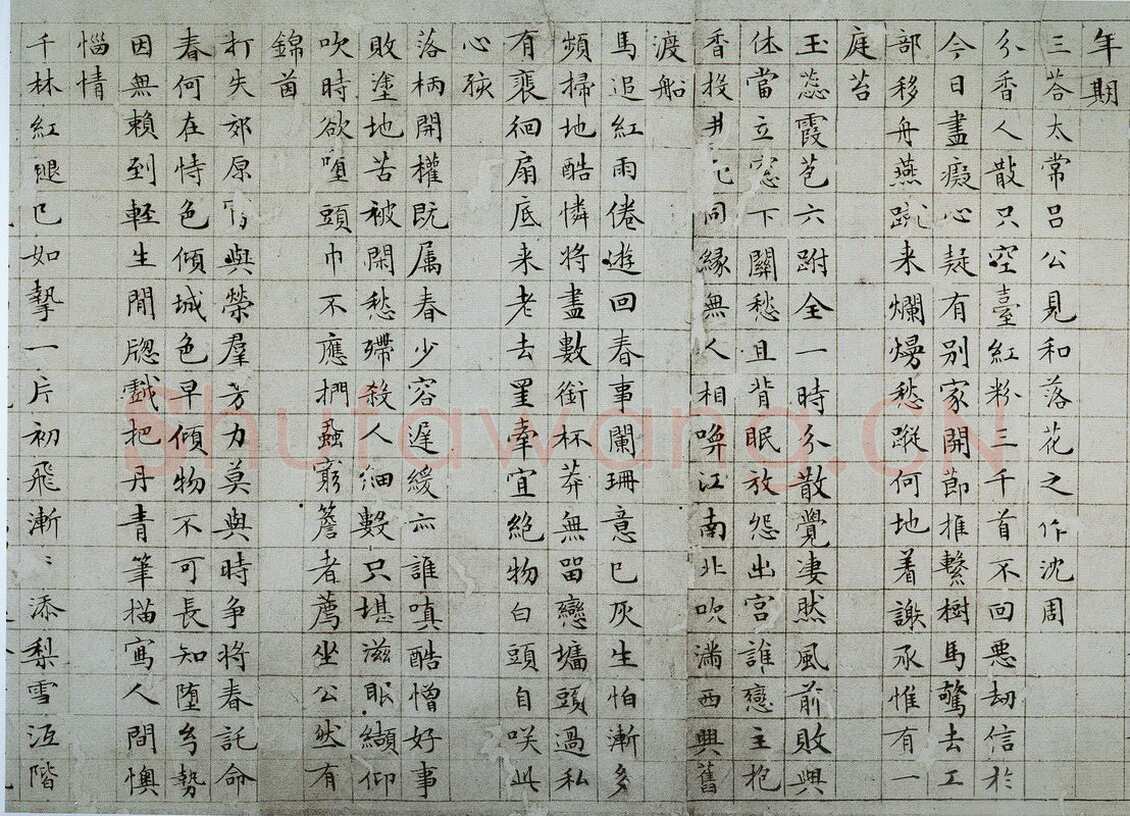 年期
三荅太常吕公見和落花之作沈周
分香人散只空臺紅粉三千首不回惡劫信於
今日盡癡心疑有別家開節推繫樹馬驚去工
部移舟燕蹴来爛熳愁蹤何地着謝承惟有一
庭苔
玉蕊霞苞六跗全一時分散覺凄然風前敗興
休當立窓下關愁且背眠放怨出宫誰戀主抱
香投井死同緣無人相喚江南北吹滿西興舊
渡船
馬追紅雨倦遊回春事闌珊意已灰生怕漸多
頻掃地酷憐將盡數銜杯莽無留戀墻頭過私
有裵徊扇底来老去罣牽宜絕物白頭自咲此
心孩
落柄開權既属春少容遅緩亦誰嗔酷憎好事
敗塗地苦被閑愁殢殺人細數只堪滋眼纈仰
吹時欲堕頭巾不應捫蝨窮簷者薦坐公然有
錦茵
打失郊原與榮羣芳力莫與時争將春託命
春何在恃色傾城色早傾物不可長知堕勢
因無賴到軽生閒牕戲把丹青筆描寫人間懊
惱情
千林紅褪已如一片初飛漸〻添梨雪沍階
Shufawang.CN